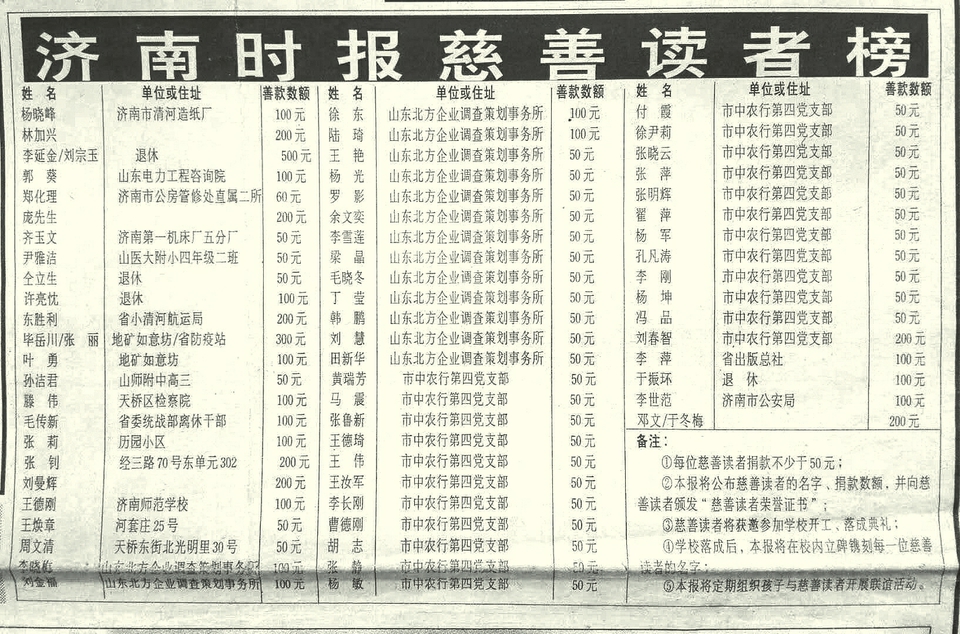 济南时报慈善读者榜
姓 名 单位或住址 善款数额
杨晓峰 济南市清河造纸厂 100元
林加兴 200元
李延金/刘宗玉 退休 500元
郭 葵 山东电力工程咨询院 100元
郑化理 济南市公房管修处直属二所 60元
庞先生 200元
齐玉文 济南第一机床厂五分厂 50元
尹雅洁 山医大附小四年级二班 50元
仝立生 退休 50元
许亮忱 退休 100元
东胜利 省小清河航运局 200元
毕岳川/张 丽 地矿如意坊/省防疫站 300元
叶 勇 地矿如意坊 100元
孙洁君 山师附中高三 50元
滕 伟 天桥区检察院 100元
毛传新 省委统战部离休干部 100元
张 莉 历园小区 100元
张 钊 经三路70号东单元302 200元
刘曼辉 200元
王德刚 济南师范学校 100元
王焕章 河套庄25号 50元
周文清 天桥东街北光明里30号 50元
山东北方企业调查策划事务所 100元
刘金福 山东北方企业调查策划事务所 100元
姓 名 单位或住址 善款数额
徐 东 山东北方企业调查策划事务所 100元
陆 琦 山东北方企业调查策划事务所 100元
王 艳 山东北方企业调查策划事务所 50元
杨 光 山东北方企业调查策划事务所 50元
罗 影 山东北方企业调查策划事务所 50元
余文奕 山东北方企业调查策划事务所 50元
李雪莲 山东北方企业调查策划事务所 50元
梁 晶 山东北方企业调查策划事务所 50元
毛晓冬 山东北方企业调查策划事务所 50元
丁 莹 山东北方企业调查策划事务所 50元
韩 鹏 山东北方企业调查策划事务所 50元
刘 慧 山东北方企业调查策划事务所 50元
田新华 山东北方企业调查策划事务所 50元
黄瑞芳 市中农行第四党支部 50元
马 震 市中农行第四党支部 50元
张鲁新 市中农行第四党支部 50元
王德琦 市中农行第四党支部 50元
王 伟 市中农行第四党支部 50元
王汝军 市中农行第四党支部 50元
李长刚 市中农行第四党支部 50元
曹德刚 市中农行第四党支部 50元
胡 志 市中农行第四党支部 50元
张 静 市中农行第四党支部 50元
杨 敏 市中农行第四党支部 50元
姓 名 单位或住址 善款数额
付 霞 市中农行第四党支部 50元
徐尹莉 市中农行第四党支部 50元
张晓云 市中农行第四党支部 50元
张 萍 市中农行第四党支部 50元
张明辉 市中农行第四党支部 50元
翟 萍 市中农行第四党支部 50元
杨 军 市中农行第四党支部 50元
孔凡涛 市中农行第四党支部 50元
李 刚 市中农行第四党支部 50元
杨 坤 市中农行第四党支部 50元
冯 品 市中农行第四党支部 50元
刘春智 市中农行第四党支部 200元
李 萍 省出版总社 100元
于振环 退 休 100元
李世范 济南市公安局 100元
邓文/于冬梅 200元
备注：
①每位慈善读者捐款不少于50元；
②本报将公布慈善读者的名字、捐款数额，并向慈
善读者颁发“慈善读者荣誉证书”；
③慈善读者将获邀参加学校开工、落成典礼；
④学校落成后，本报将在校内立碑镌刻每一位慈善
读者的名字；
⑤本报将定期组织孩子与慈善读者开展联谊活动。